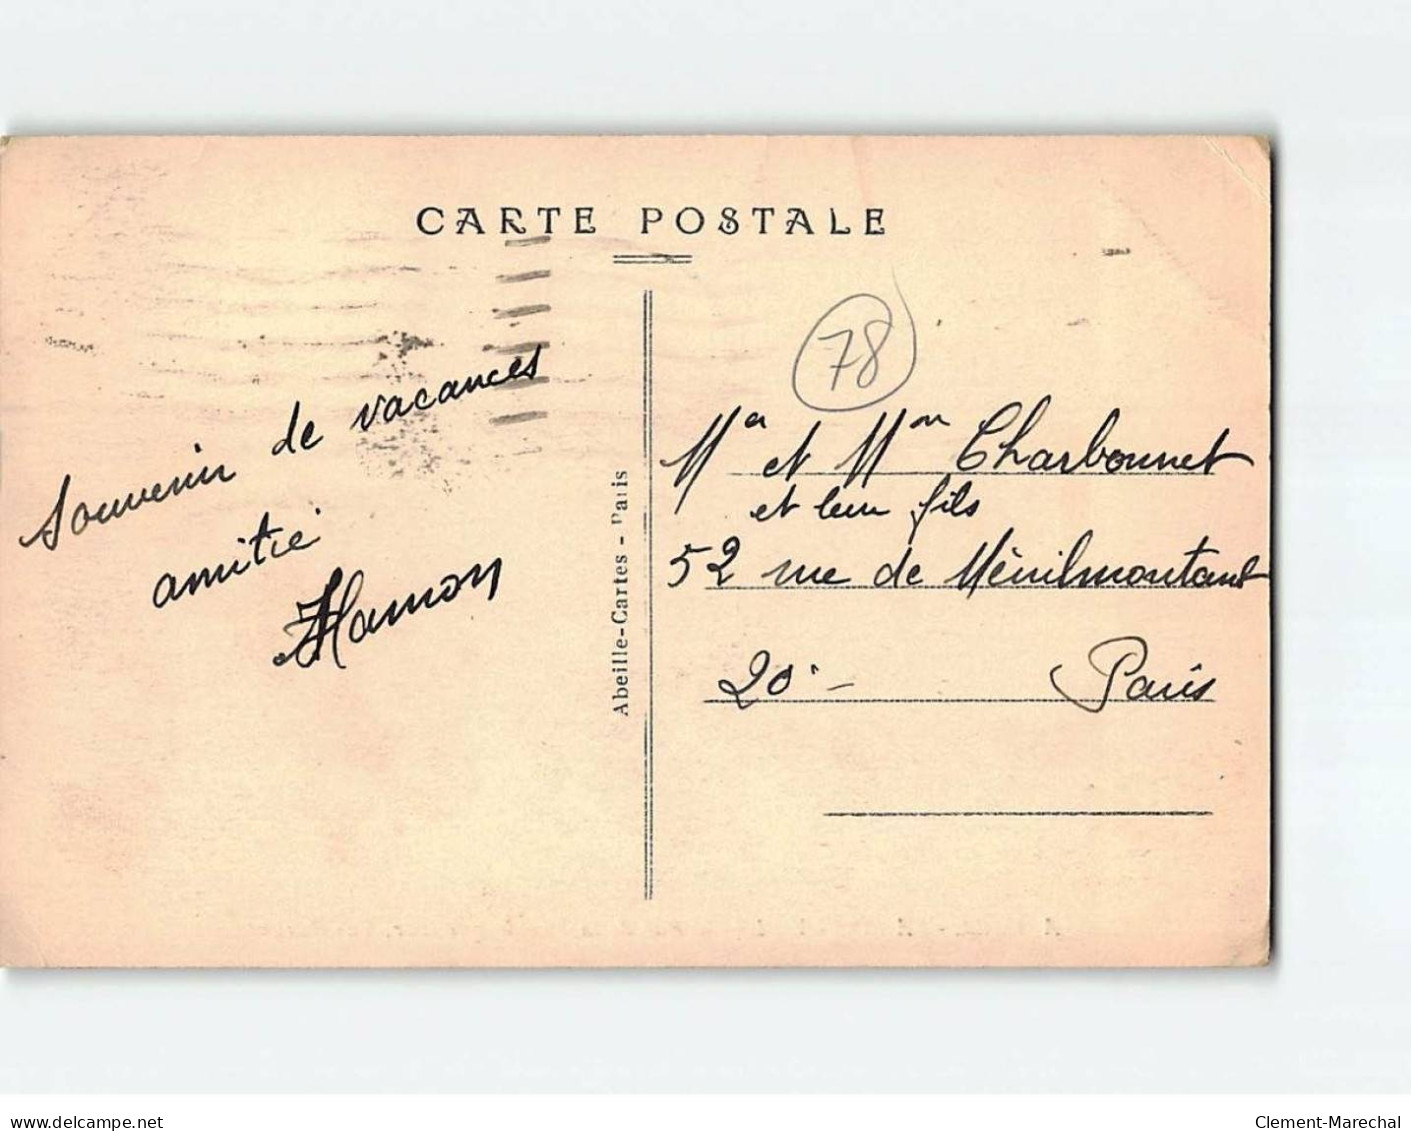 CARTE POSTALE
78
souvenir de vacances
amitié
Hamon
Abeille-Cartes - Paris
Mr et Mme Charbonnet
et leur fils
52 rue de Ménilmontant
20e - Paris
www.delcampe.net
Clement-Marechal